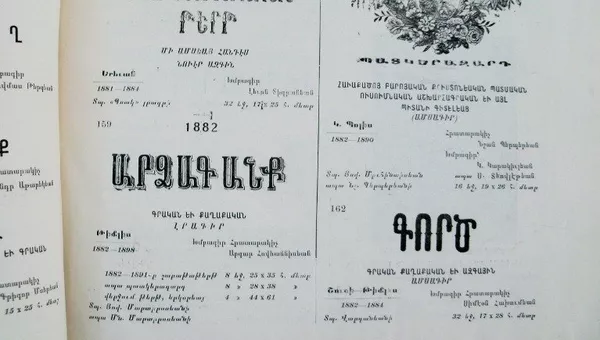 Ղ
ԹԵՐԹ
ՄԻ ԱՄՍԵԱՅ ՀԱՆԴԷՍ
ՆՈՒԷՐ ԱԶԳԻՆ
Երևան
Խմբագիր
1881—1884
32 էջ, 17 25 Հ. մետր
159
1882
ԱՐՁԱԳԱՆՔ
ԳՐԱԿԱՆ ԵՒ ՔԱՂԱՔԱԿԱՆ
ԼՐԱԳԻՐ
Թիֆլիս
Խմբագիր Հրատարակիչ
1882—1898
Աբգար Հովհաննիսեան
1882—1891-ը շաբաթաթերթ 8 էջ, 25 x 35 Հ. մետր
ապա պատկերազարդ 8 » 28 x 38 »
վերջում թերթ, երկօրեայ 4 » 44 x 61 »
ապա Մն.
ՊԱՏԿԵՐԱԶԱՐԴ
ՀԱՒԱՔԱԾՈՅ ԲԱՐՈՅԱԿԱՆ ՔՐԻՍՏՈՆԷԱԿԱՆ ՊԱՏՄԱԿԱՆ
ՈՒՍՈՒՄՆԱԿԱՆ ԱՇԽԱՐՀԱԳՐԱԿԱՆ ԵՒ ԱՅԼ
ՊԻՏԱՆԻ ԳԻՏԵԼԵԱՑ
(ԱՄՍԱԳԻՐ)
Կ. Պոլիս
Հրատարակիչ
1882—1890
Նշան Պէրպէրեան
Խմբագիր
16 էջ, 19 x 26 Հ. մետր
162
ԳՈՐԾ
ԳՐԱԿԱՆ ՔԱՂԱՔԱԿԱՆ ԵՒ ԱԶԳԱՅԻՆ
ԱՄՍԱԳԻՐ
Շուշի-Թիֆլիս
Խմբագիր Հրատարակիչ
1882—1884
Սիմէոն Հախումեան
Տպ. Վարդանեանի
32 էջ, 17 x 28 Հ. մետր
Ք
ԵՒ ԳՐԱԿԱՆ
15 x 25 Հ. մետր